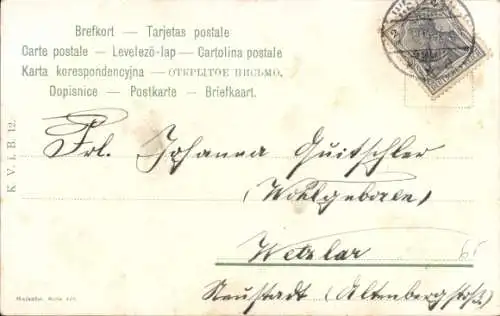 Brefkort — Tarjetas postale
Carte postale — Levelező-lap — Cartolina postale
Karta korespondencyjna — ОТКРЫТОЕ ПИСЬМО.
Dopisnice — Postkarte — Briefkaart.
K. V. i. B. 12.
Frl. Johanna Quitschler
(Wohlgeboren)
Wetzlar
Neustadt (Altenbergstraß)
65